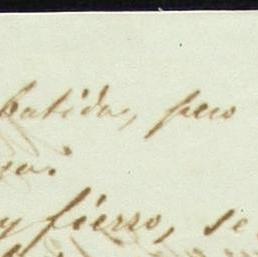 batida, pero
y fierro, se